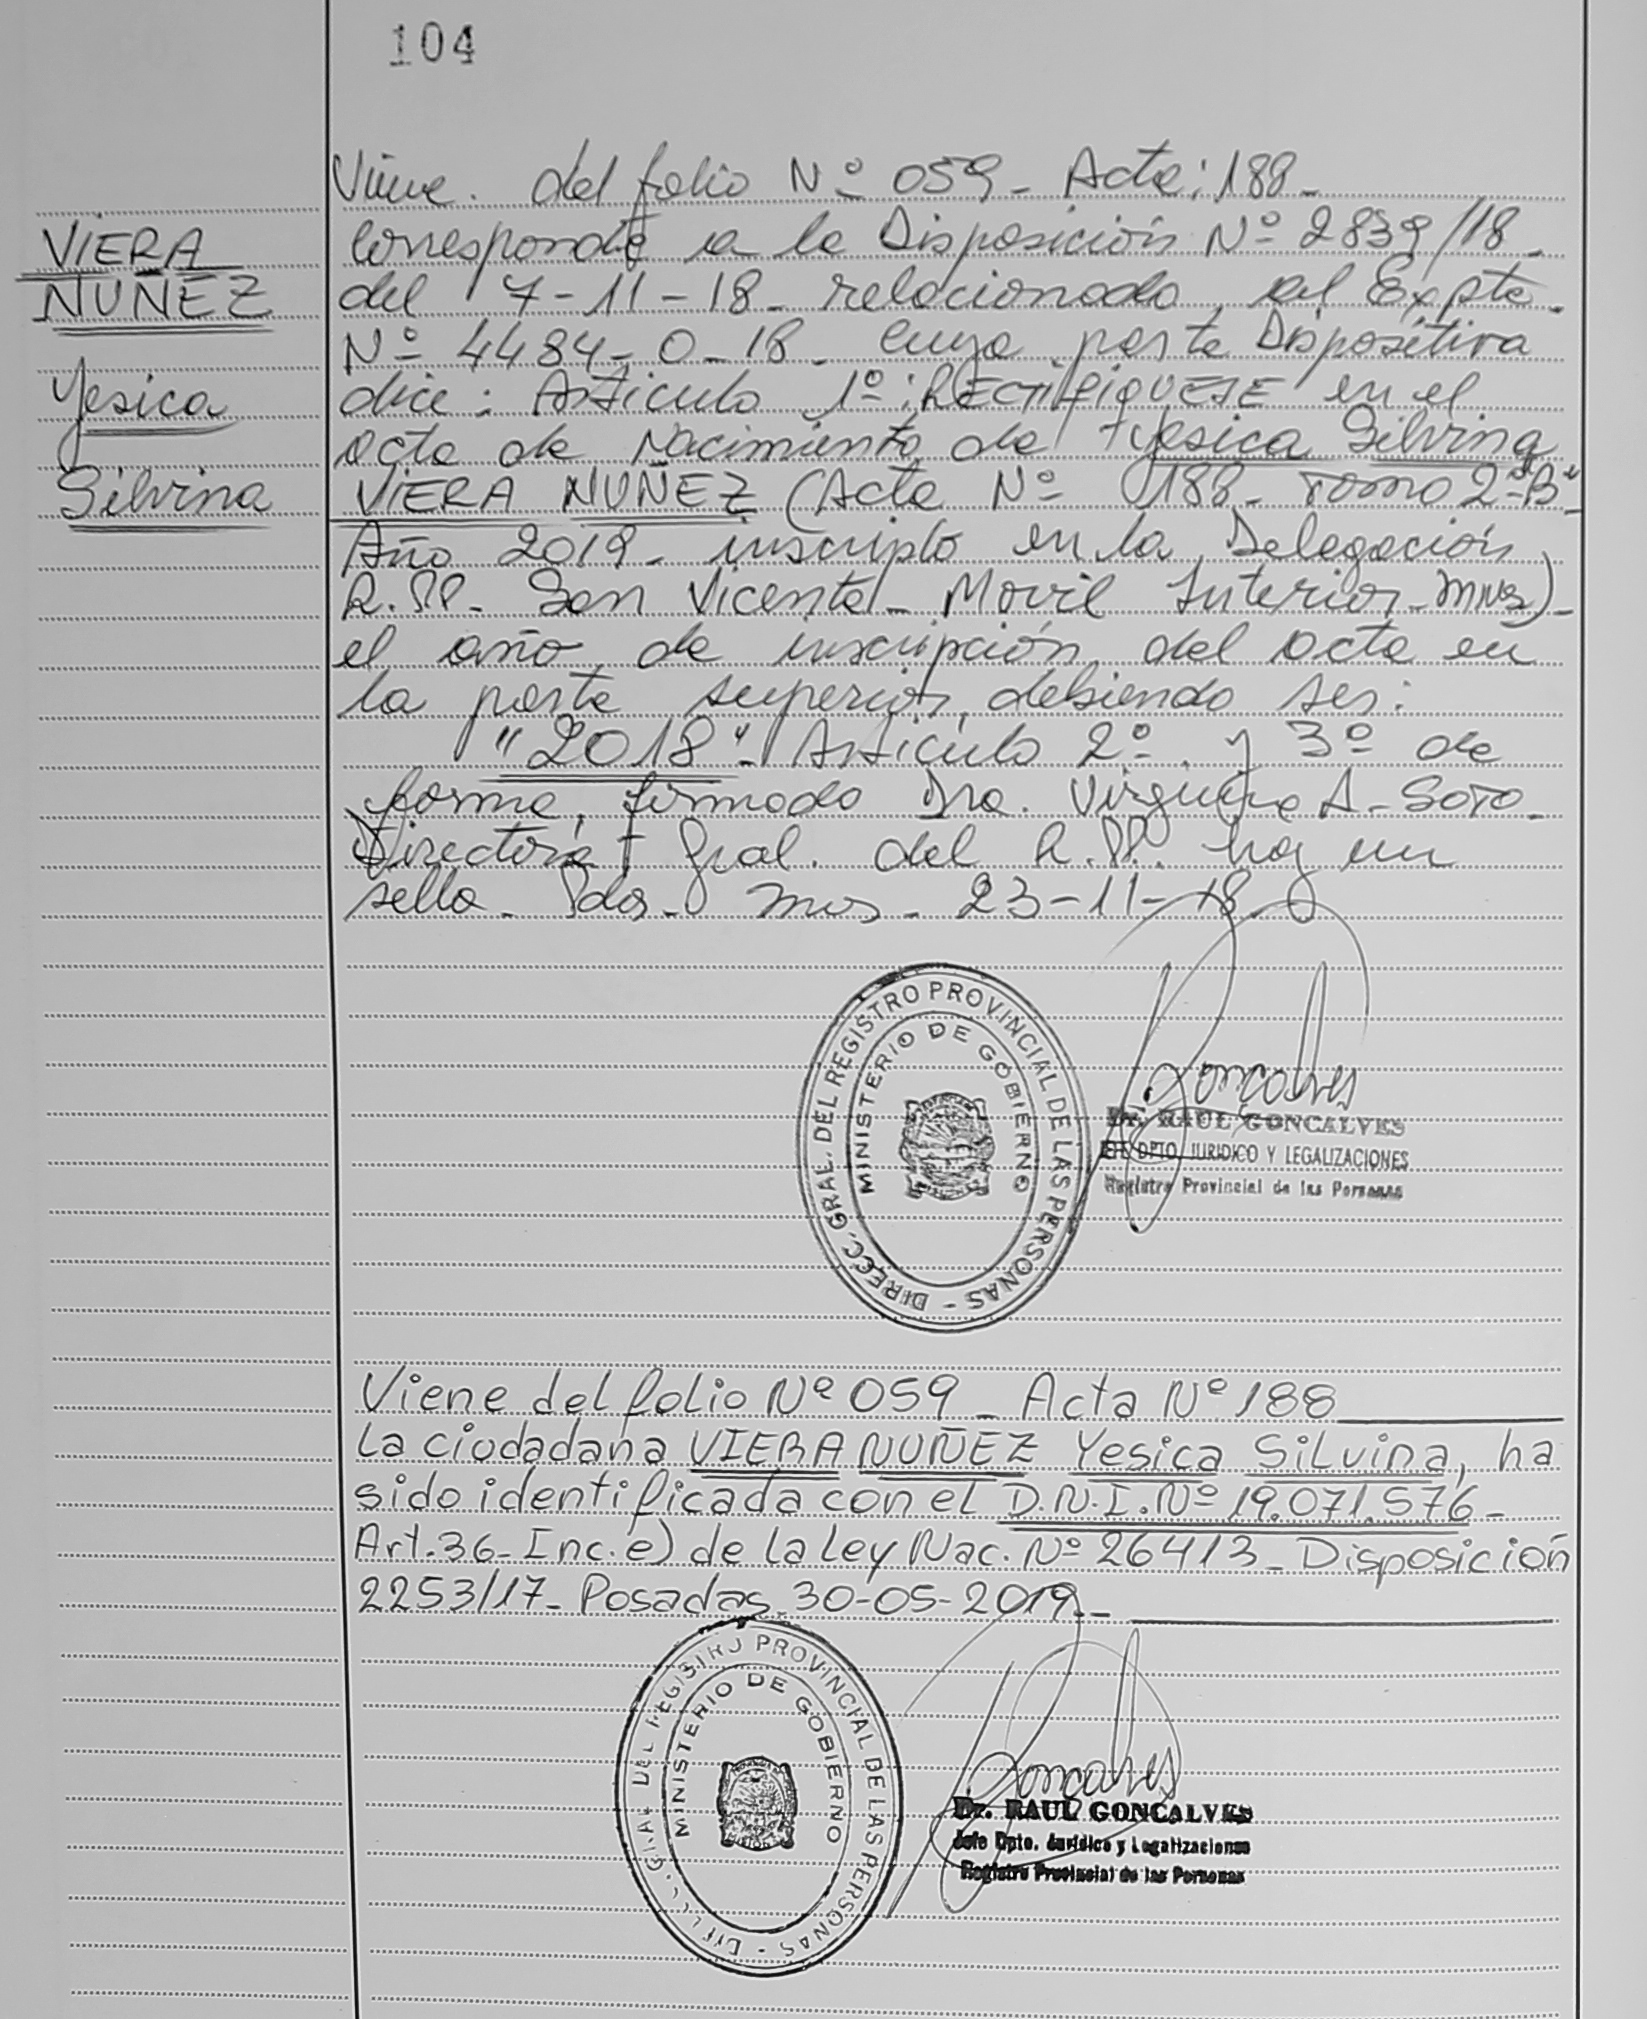 104
VIERA
NUÑEZ
Yesica
Silvina
Viene. del folio Nº 059- Acta: 188-
corresponde a la Disposición Nº 2839/18-
del 7-11-18- relacionado al Expte.
Nº 4484-0-18- cuya parte Dispositiva
dice: Articulo 1º: RECTIFIQUESE en el
acta de Nacimiento de Yesica Silvina
VIERA NUÑEZ (Acta Nº 188- Tomo 2º "B"-
Año 2019- inscripto en la Delegación
R.PP- San Vicente- Movil Interior-Mnes)-
el año de inscripción del acta en
la parte superior, debiendo ser:
"2018"- Articulo 2º y 3º de
forma, firmado Dra. Virginia A- SOTO-
Directora Gral. del R.PP. hay un
sello- Pdas- Mnes- 23-11-18
DIRECC. GRAL. DEL REGISTRO PROVINCIAL DE LAS PERSONAS -
MINISTERIO DE GOBIERNO
Goncalves
Dr. RAUL GONCALVES
JEFE DPTO. JURIDICO Y LEGALIZACIONES
Registro Provincial de las Personas
Viene del folio Nº 059 - Acta Nº 188
La ciudadana VIERA NUÑEZ Yesica Silvina, ha
sido identificada con el D.N.I. Nº 19.071.576-
Art.36- Inc.e) de la Ley Nac. Nº 26413- Disposición
2253/17- Posadas 30-05-2019-
DIRECC. GRAL. DEL REGISTRO PROVINCIAL DE LAS PERSONAS -
MINISTERIO DE GOBIERNO
Goncalves
Dr. RAUL GONCALVES
Jefe Dpto. Jurídico y Legalizaciones
Registro Provincial de las Personas